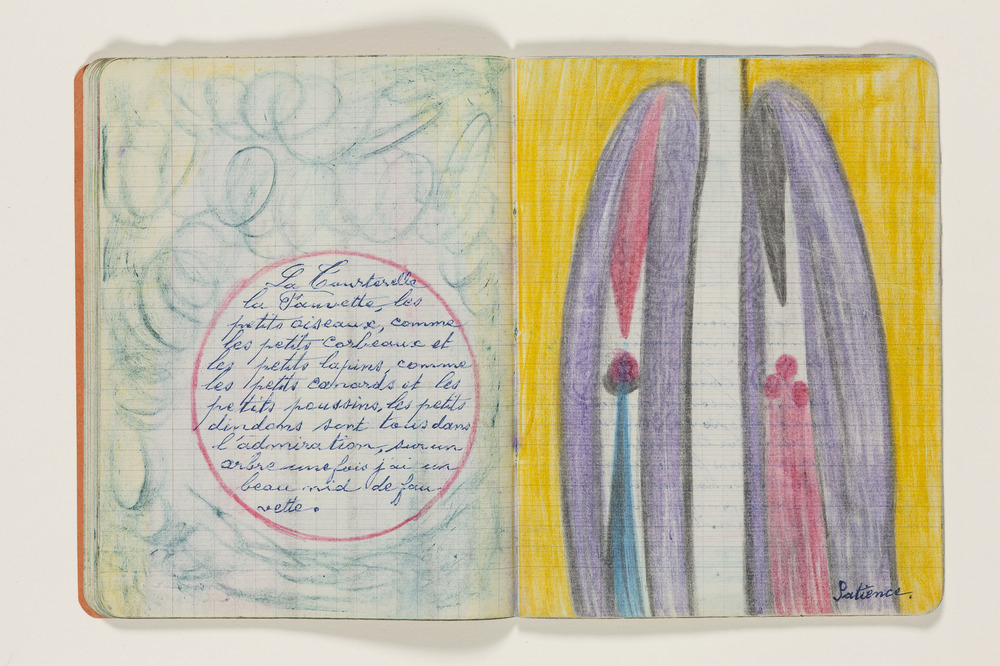 La Tourterelle
la Fauvette, les
petits oiseaux, comme
les petits corbeaux et
les petits lapins, comme
les petits canards et les
petits poussins, les petits
dindons sont tous dans
l'admiration, sur un
arbre une fois j'ai un
beau nid de fau-
vette.
Patience.